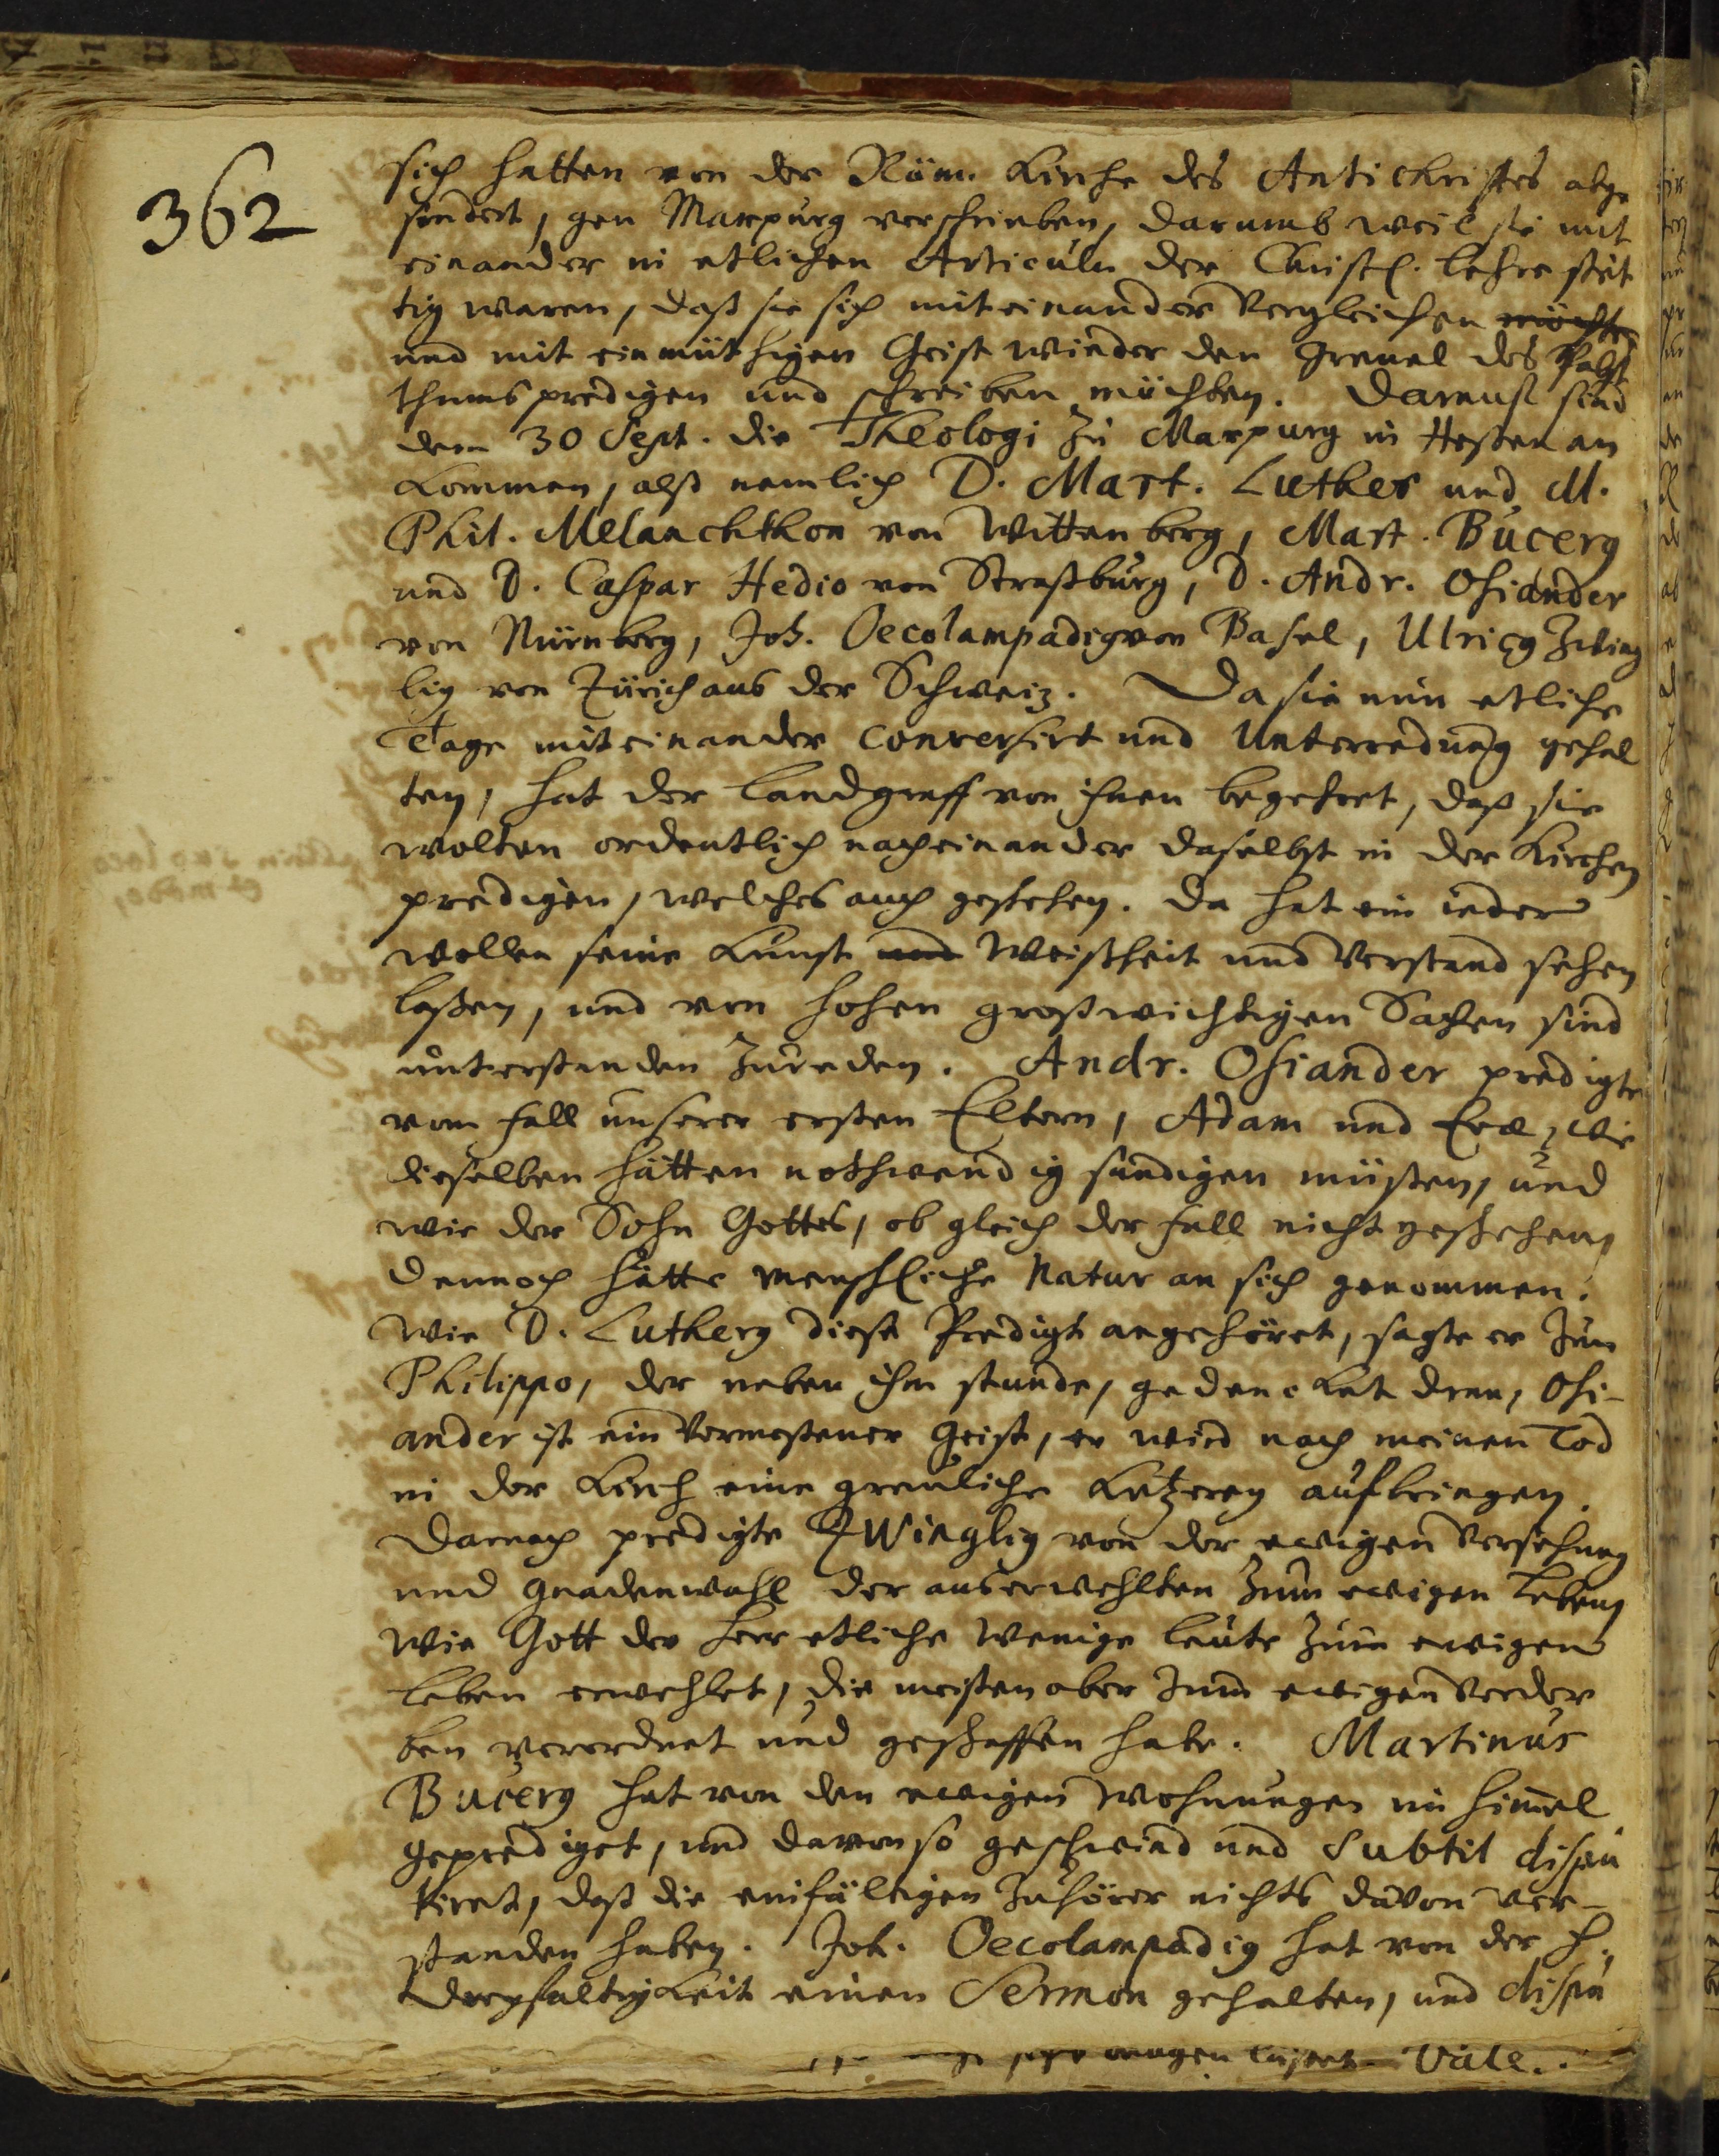 362
sich hatten von der Röm. Kirche des Antichristes abge
sondert, gen Marpurg verschrieben, darumb weil sie mit
einander in etlichen Articuln der Christl. Lehre strit
tig waren, daß sie sich miteinander vergleichen möchten
und mit einmüthigen Geist wieder den Greuel des Pabst
thums predigen und schreiben möchten. Darauf sind
dem 30 Sept. die Theologi zu Marpurg in Heßen an
kommen, alß nemlich D. Mart. Luther und M.
Phil. Melanchthon von Wittenberg, Mart. Bucerus
und D. Caspar Hedio von Straßburg, D. Andr. Osiander
von Nürnberg, Joh. Oecolampadius von Basel, Ulricus Zwing
lius von Zürich aus der Schweiz. Da sie nun etliche
Tage miteinander conversirt und Unterredung gehal
ten, hat der Landgraff von ihnen begehret, daß sie
wolten ordentlich nacheinander daselbst in der Kirchen
predigen, welches auch geschehen. Da hat ein ieder
wollen seine Kunst und Weißheit und Verstand sehen
laßen, und von hohen großwichtigen Sachen sind
unterstanden zureden. Andr. Osiander predigte
vom Fall unserer ersten Eltern, Adam und Eva, wie
dieselben hätten nothwendig sündigen müßen, und
wie der Sohn Gottes, ob gleich der Fall nicht geschehen,
dennoch hätte menschliche Natur an sich genommen.
Wie D. Lutherus diese Predigt angehöret, sagte er zum
Philippo, der neben ihm stunde, gedencket dran, Osi-
ander ist ein vermeßener Geist, er wird nach meinen Tod
in der Kirch eine greuliche Ketzerey aufbringen.
Darnach predigte Zwinglius von der ewigen Versehung
und Gnadenwahl der auserwehlten zum ewigen Leben,
wie Gott der Herr etliche wenige Leute zum ewigen
Leben erwehlet, die meisten aber zum ewigen Verder
ben verordnet und geschaffen habe. Martinus
Bucerus hat von den ewigen Wohnungen im Himmel
geprediget, und davon so geschwind und subtil dispu
tiret, daß die einfältigen Zuhörer nichts davon ver-
standen haben. Joh. Oecolampadius hat von der H.
Dreyfaltigkeit einen Sermon gehalten, und dispu
Vale.